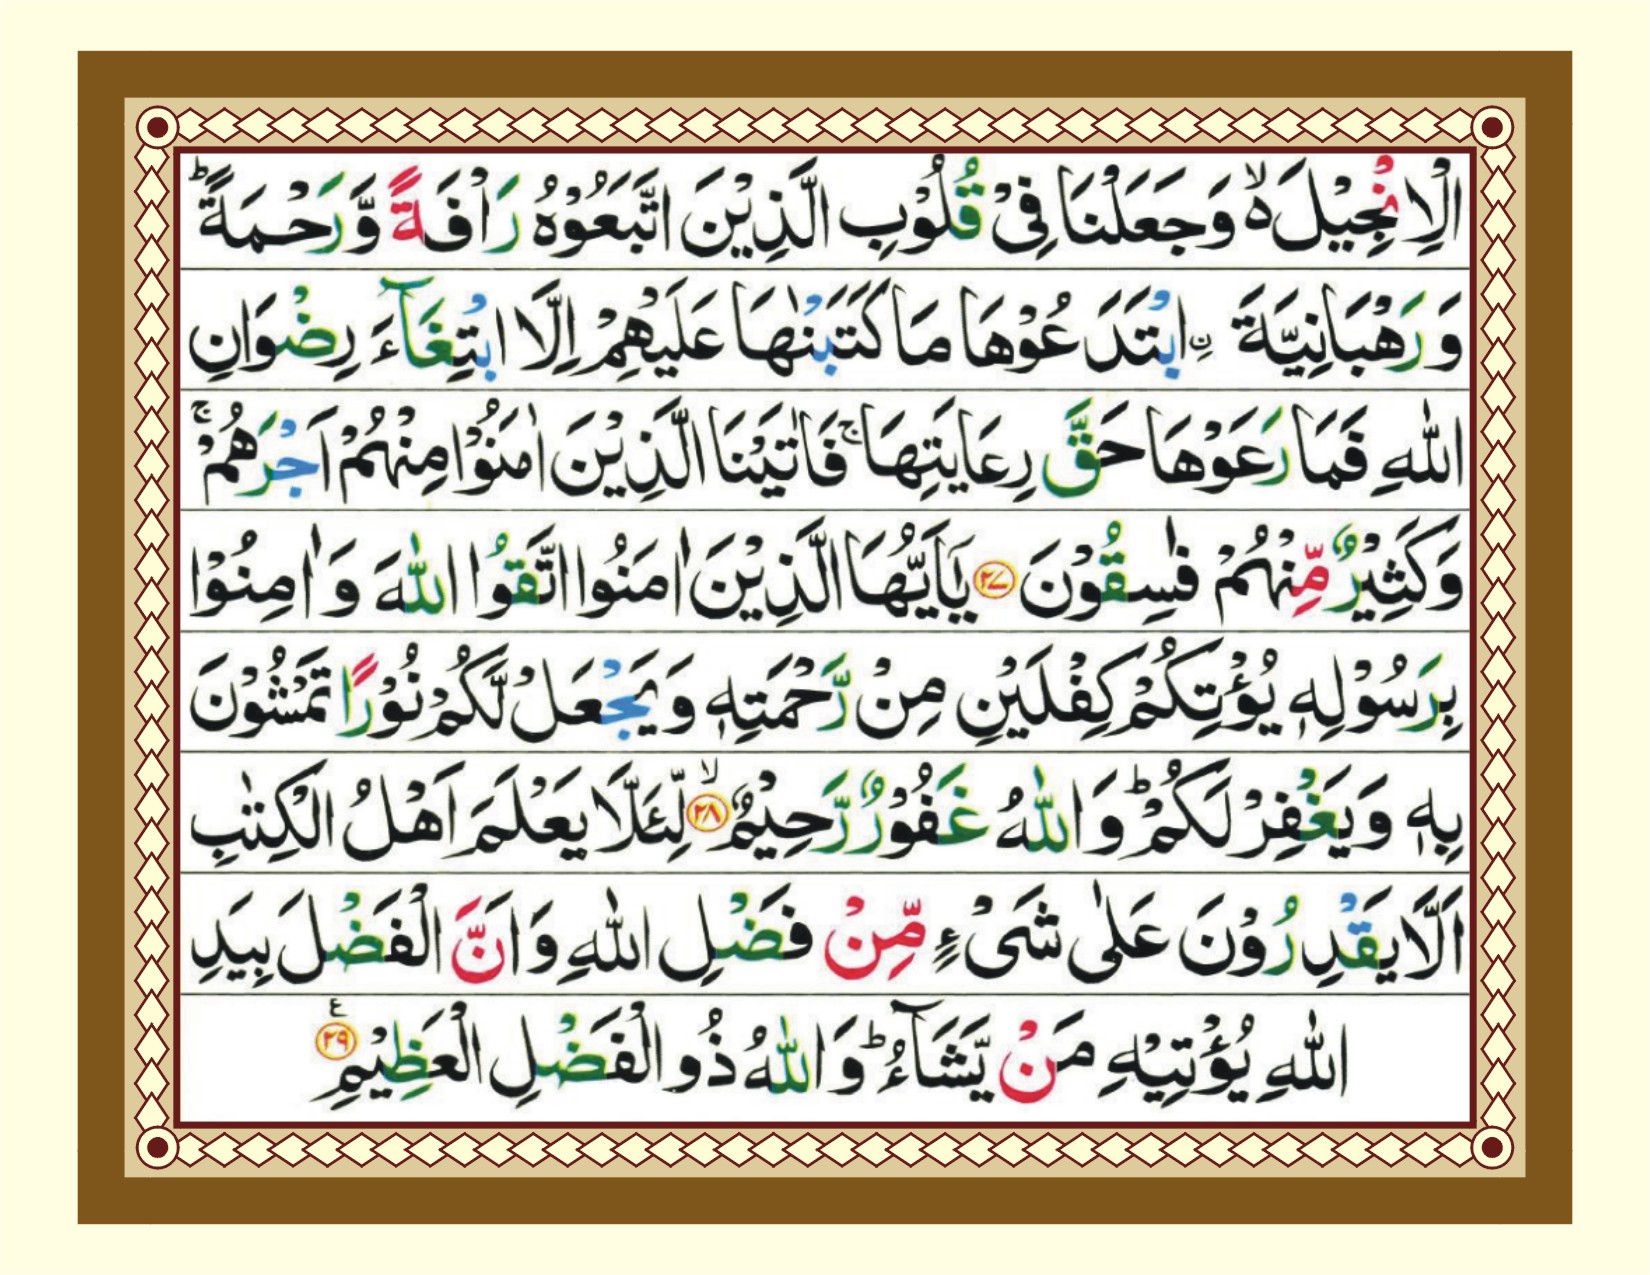 الْاِنْجِيْلَ ۙ۬ وَجَعَلْنَا فِىْ قُلُوْبِ الَّذِيْنَ اتَّبَعُوْهُ رَاْفَةً وَّرَحْمَةً ؕ
وَرَهْبَانِيَّةَ ۨ ابْتَدَعُوْهَا مَا كَتَبْنٰهَا عَلَيْهِمْ اِلَّا ابْتِغَآءَ رِضْوَانِ
اللّٰهِ فَمَا رَعَوْهَا حَقَّ رِعَايَتِهَا ۚ فَاٰتَيْنَا الَّذِيْنَ اٰمَنُوْا مِنْهُمْ اَجْرَهُمْ ۚ
وَكَثِيْرٌ مِّنْهُمْ فٰسِقُوْنَ ۲۷ يٰۤاَيُّهَا الَّذِيْنَ اٰمَنُوا اتَّقُوا اللّٰهَ وَاٰمِنُوْا
بِرَسُوْلِهٖ يُؤْتِكُمْ كِفْلَيْنِ مِنْ رَّحْمَتِهٖ وَيَجْعَلْ لَّكُمْ نُوْرًا تَمْشُوْنَ
بِهٖ وَيَغْفِرْ لَكُمْ ؕ وَاللّٰهُ غَفُوْرٌ رَّحِيْمٌ ۲۸ ۙ لِّئَلَّا يَعْلَمَ اَهْلُ الْكِتٰبِ
اَلَّا يَقْدِرُوْنَ عَلٰى شَىْءٍ مِّنْ فَضْلِ اللّٰهِ وَاَنَّ الْفَضْلَ بِيَدِ
اللّٰهِ يُؤْتِيْهِ مَنْ يَّشَآءُ ؕ وَاللّٰهُ ذُو الْفَضْلِ الْعَظِيْمِ ۲۹ ع